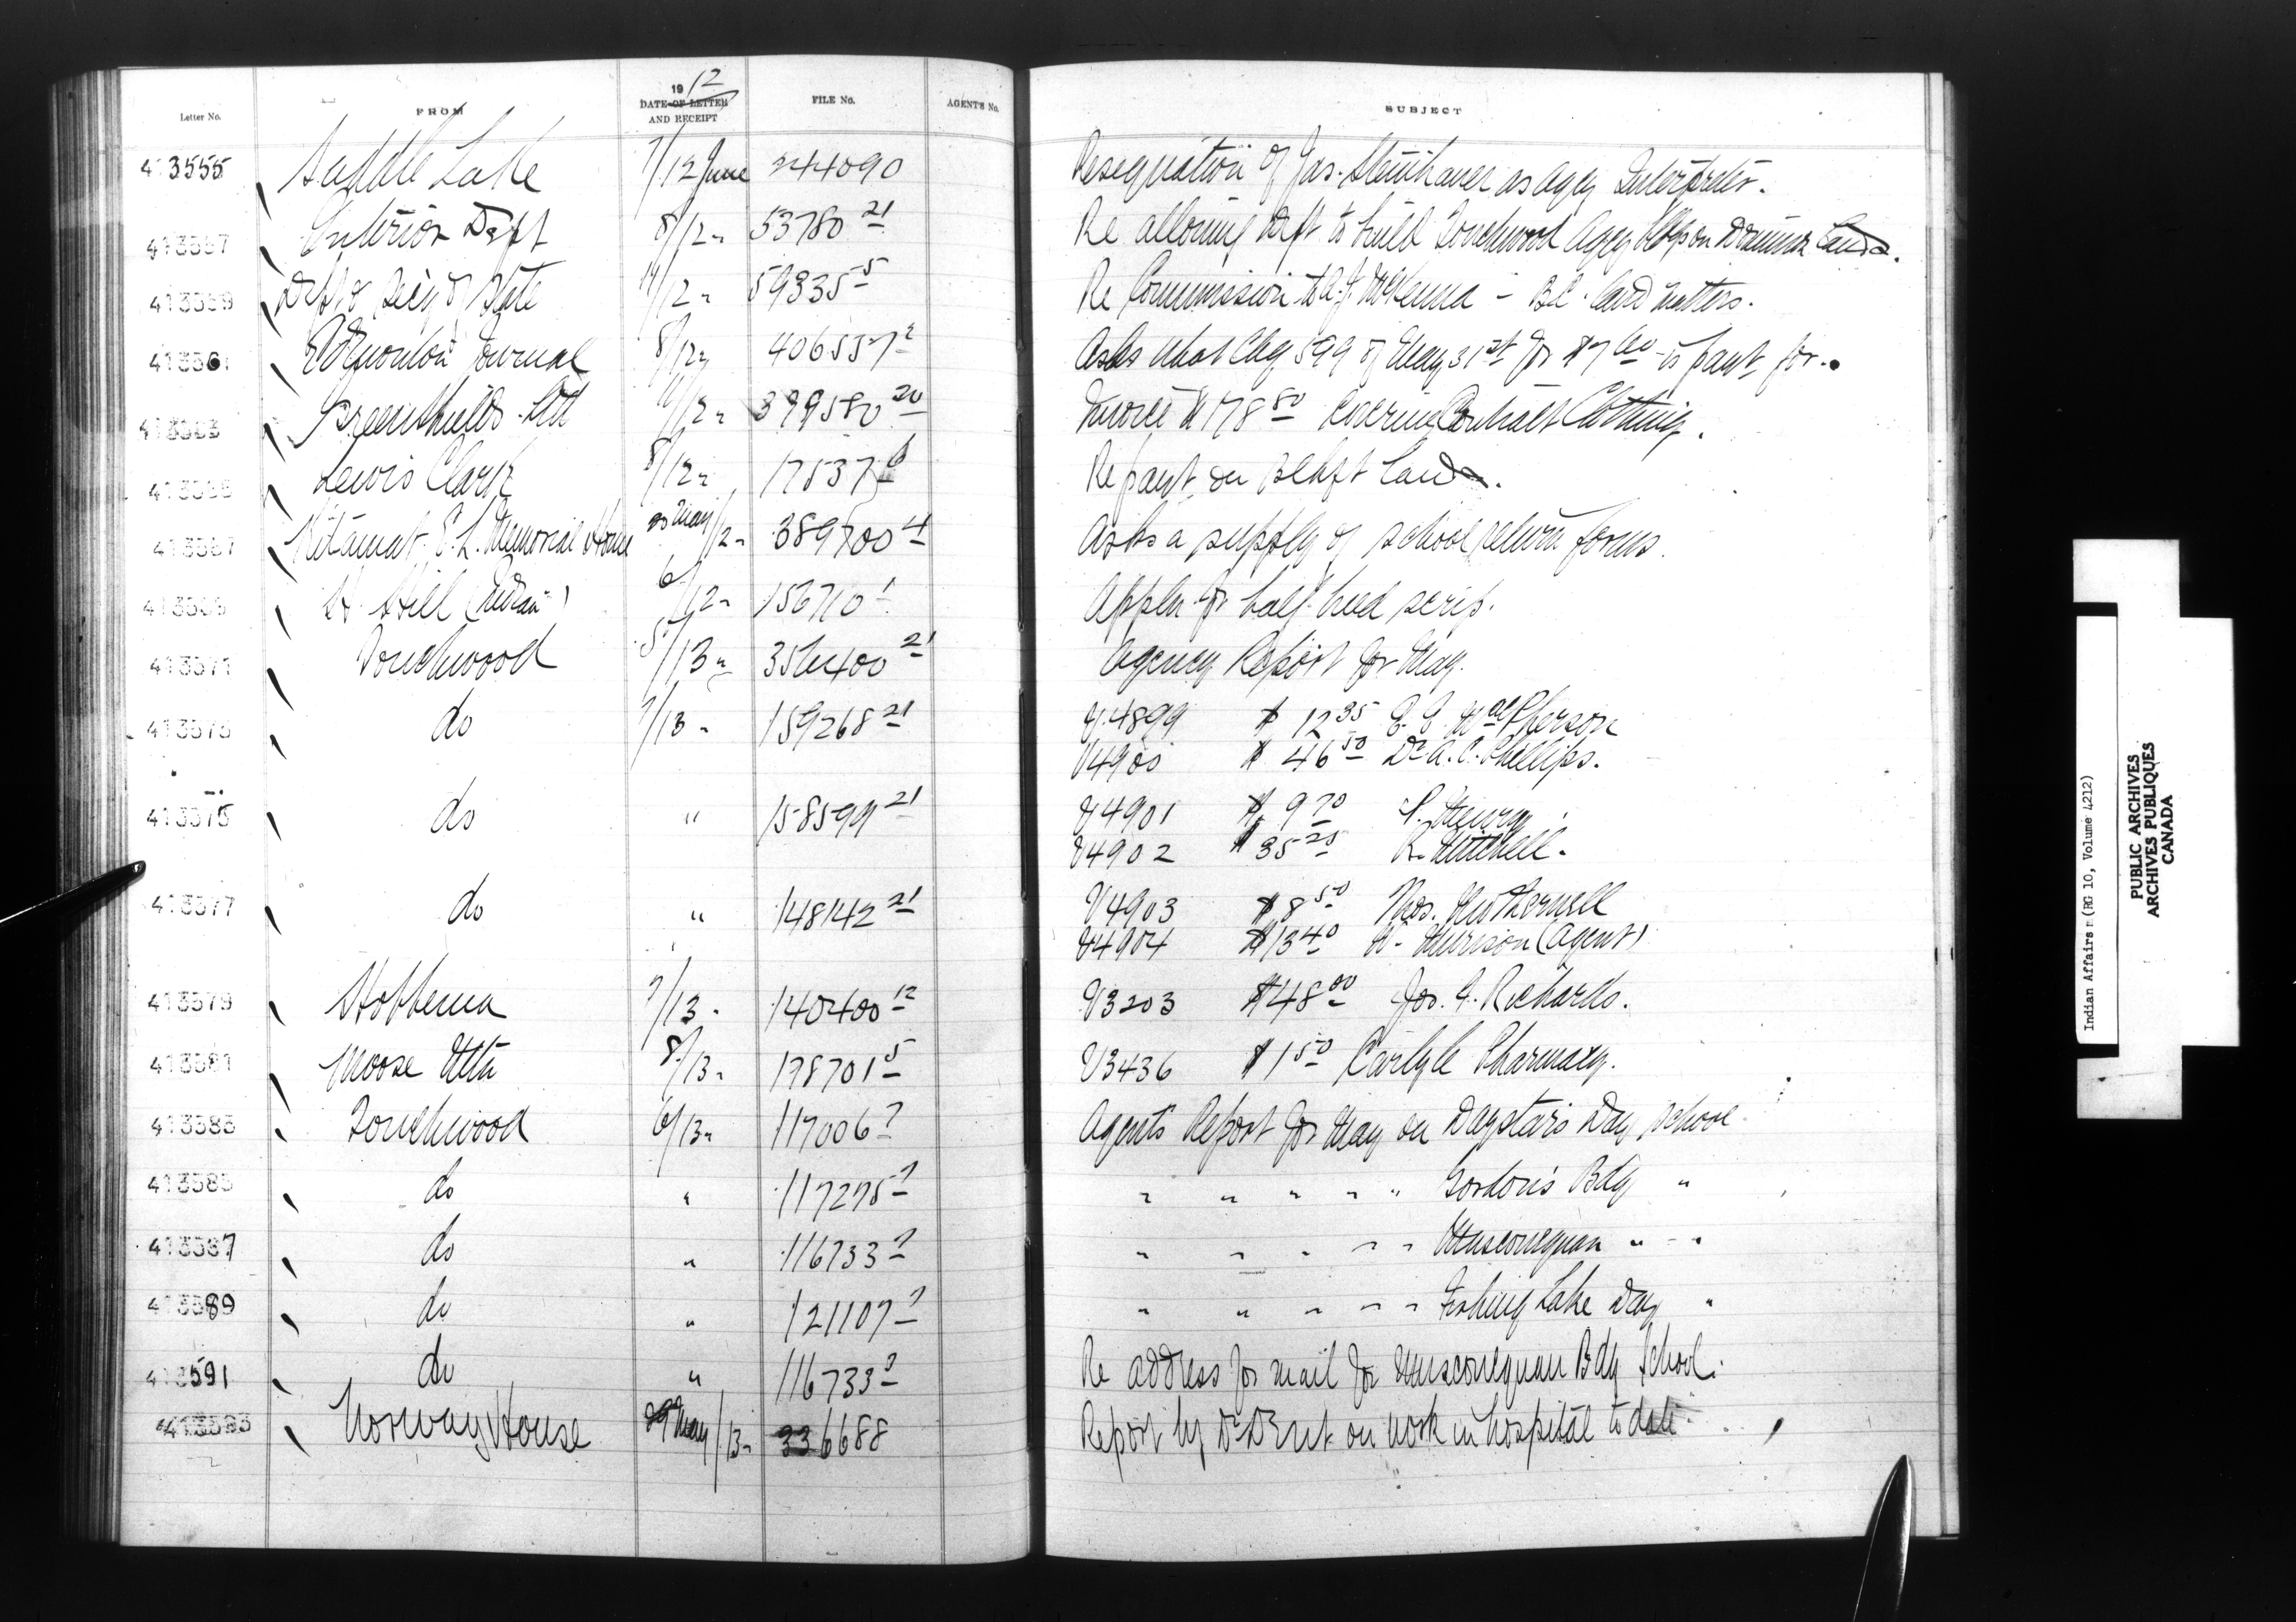 Letter No. FROM 1912 DATE OF LETTER AND RECEIPT FILE No. AGENT'S No. SUBJECT
413555 Saddle Lake 7/12 June 244090 Resignation of Jas. Steinhauer as Agcy Interpreter.
413557 Interior Dept 8/12 " 53780 21 Re allowing Dept to build Touchwood Agcy on Dominion Lands.
413559 Dept of Secy of State 11/12 " 59335 5 Re Commission to A. J. McKenna – B.C. land matters.
413561 Edmonton Journal 8/12 " 406557 2 Asks what Chq 599 of May 31st for $7 60 is paymt for.
413563 Greenshields Ltd 11/12 " 399580 20 Invoice $178 80 covering Contract Clothing.
Lewis Clark 8/12 " 175376 Re paymt on Lands.
413567 Kitamat E. L. Memorial Home 20 May/12 " 389700 4 Asks a supply of school return forms.
413569 H. Hill (Indian) 6/12 " 156710 1 Appln for half breed scrip.
413571 Touchwood 5/13 " 356400 21 Agency Report for May.
413573 do 7/13 " 159268 21 V4899 $12 35 E. E. MacPherson
V4900 $46 50 Dr A. C. Phillips.
413575 do " 158599 21 V4901 $9 70 Henry.
V4902 $35 25 R. Mitchell.
413577 do " 148142 21 V4903 $8 50 Thos.
V4904 $13 40 W. Murison (Agent)
413579 Hobbema 7/13 " 140400 12 V3203 $48 00 Jos. Richards.
413581 Moose Mtn 8/13 " 178701 5 V3436 $1 50 Carlyle Pharmacy.
413583 Touchwood 6/13 " 117006 7 Agents Report for May on Daystars Day School.
413585 do " 117275 7 " " " " " Gordon's Bdg "
413587 do " 116733 7 " " " " " Muscowequan " "
413589 do " 121107 7 " " " " " Fishing Lake Day "
413591 do " 116733 7 Re address for mail for Muscowequan Bdg School.
413593 Norway House 29 May/13 " 336688 Report by Dr on work in hospital to date.
Indian Affairs (RG 10, Volume 4212)
PUBLIC ARCHIVES
ARCHIVES PUBLIQUES
CANADA